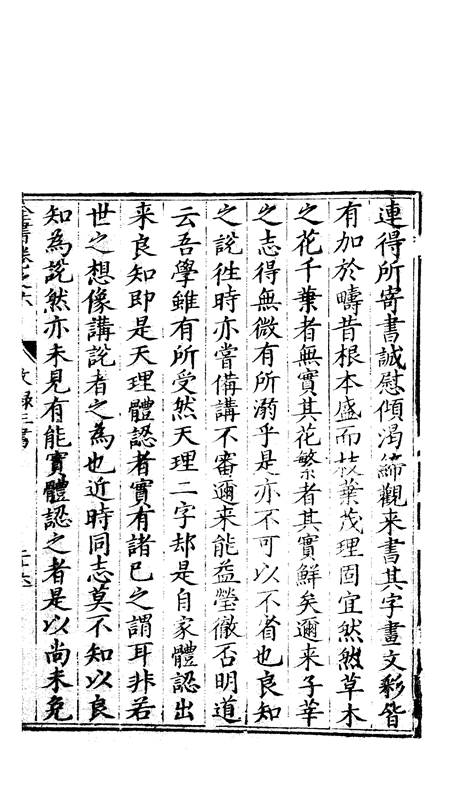 連得所寄書誠慰傾渴締觀来書其字畫文彩皆
有加於疇昔根本盛而枝葉茂理固宜然然草木
之花千葉者無實其花繁者其實鮮矣邇来子莘
之志得無微有所溺乎是亦不可以不省也良知
之說徃時亦嘗備講不審邇来能益瑩徹否明道
云吾學雖有所受然天理二字却是自家體認出
来良知即是天理體認者實有諸已之謂耳非若
世之想像講說者之為也近時同志莫不知以良
知為說然亦未見有能實體認之者是以尚未免
全書卷之六
文錄三書
二十六